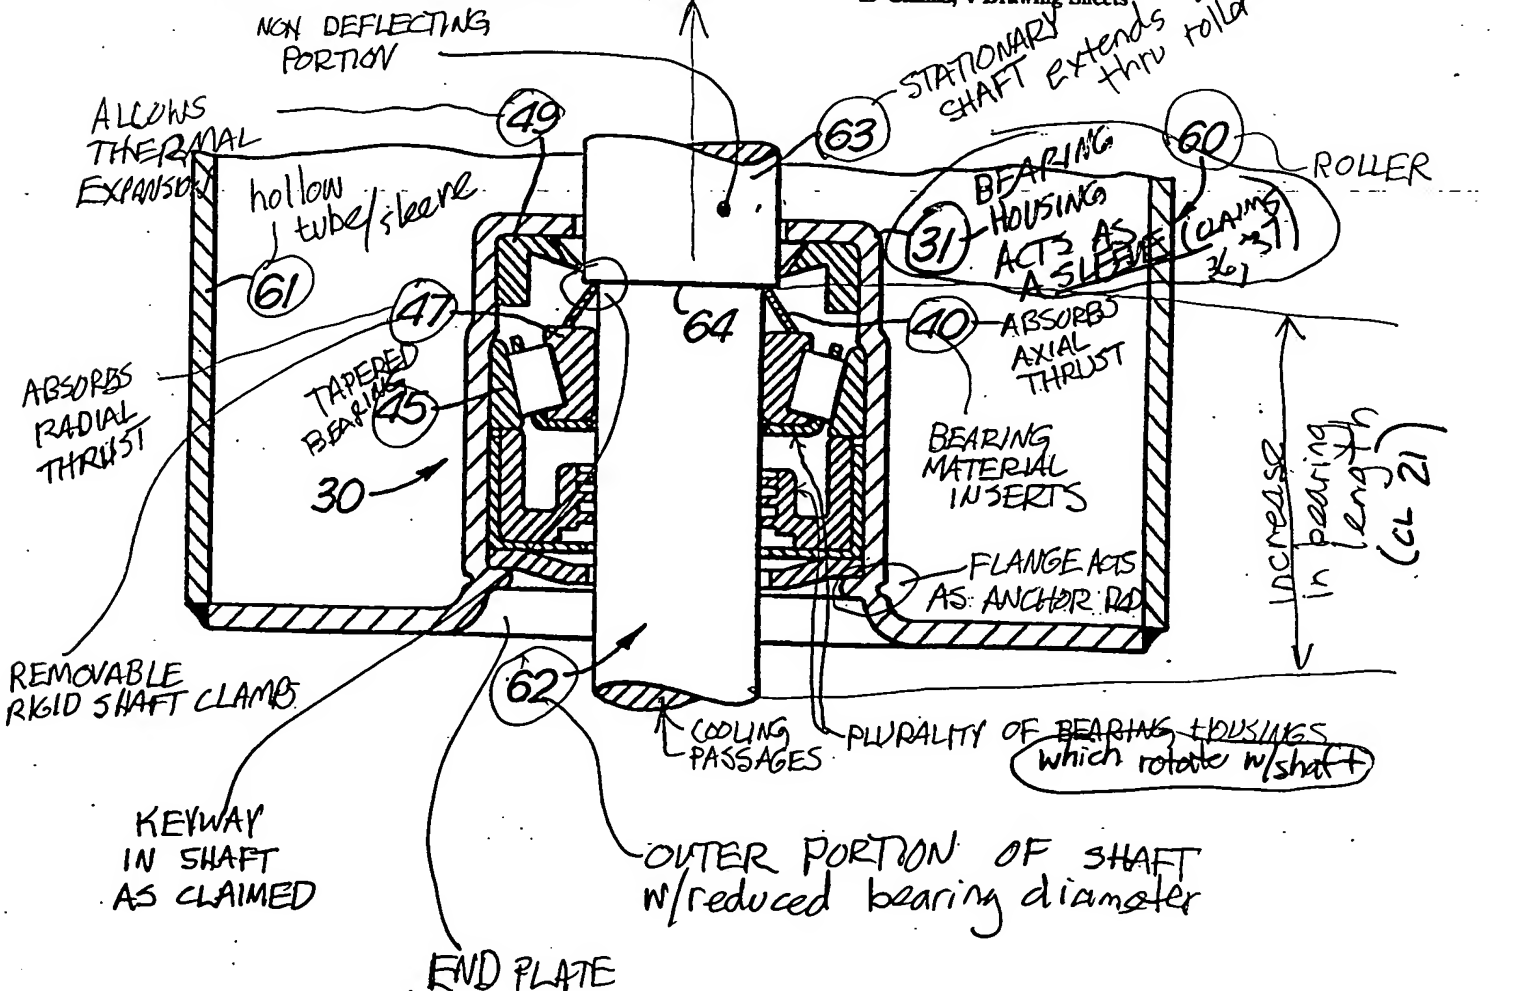 2 Claims, 4 Drawing Sheets
NON DEFLECTING
PORTION
STATIONARY
SHAFT extends
thru roller
ALLOWS
THERMAL
EXPANSION
49
63
60
ROLLER
hollow
tube/sleeve
61
BEARING
HOUSING
ACTS AS
A SLEEVE (CLAIMS
36, 37)
31
47
64
40
ABSORBS
AXIAL
THRUST
ABSORBS
RADIAL
THRUST
TAPERED
BEARING
45
30
BEARING
MATERIAL
INSERTS
Increase
in bearing
length
(CL 21)
FLANGE ACTS
AS ANCHOR ROD
REMOVABLE
RIGID SHAFT CLAMPS
62
COOLING
PASSAGES
PLURALITY OF BEARING HOUSINGS
which rotate w/shaft
KEYWAY
IN SHAFT
AS CLAIMED
OUTER PORTION OF SHAFT
w/reduced bearing diameter
END PLATE